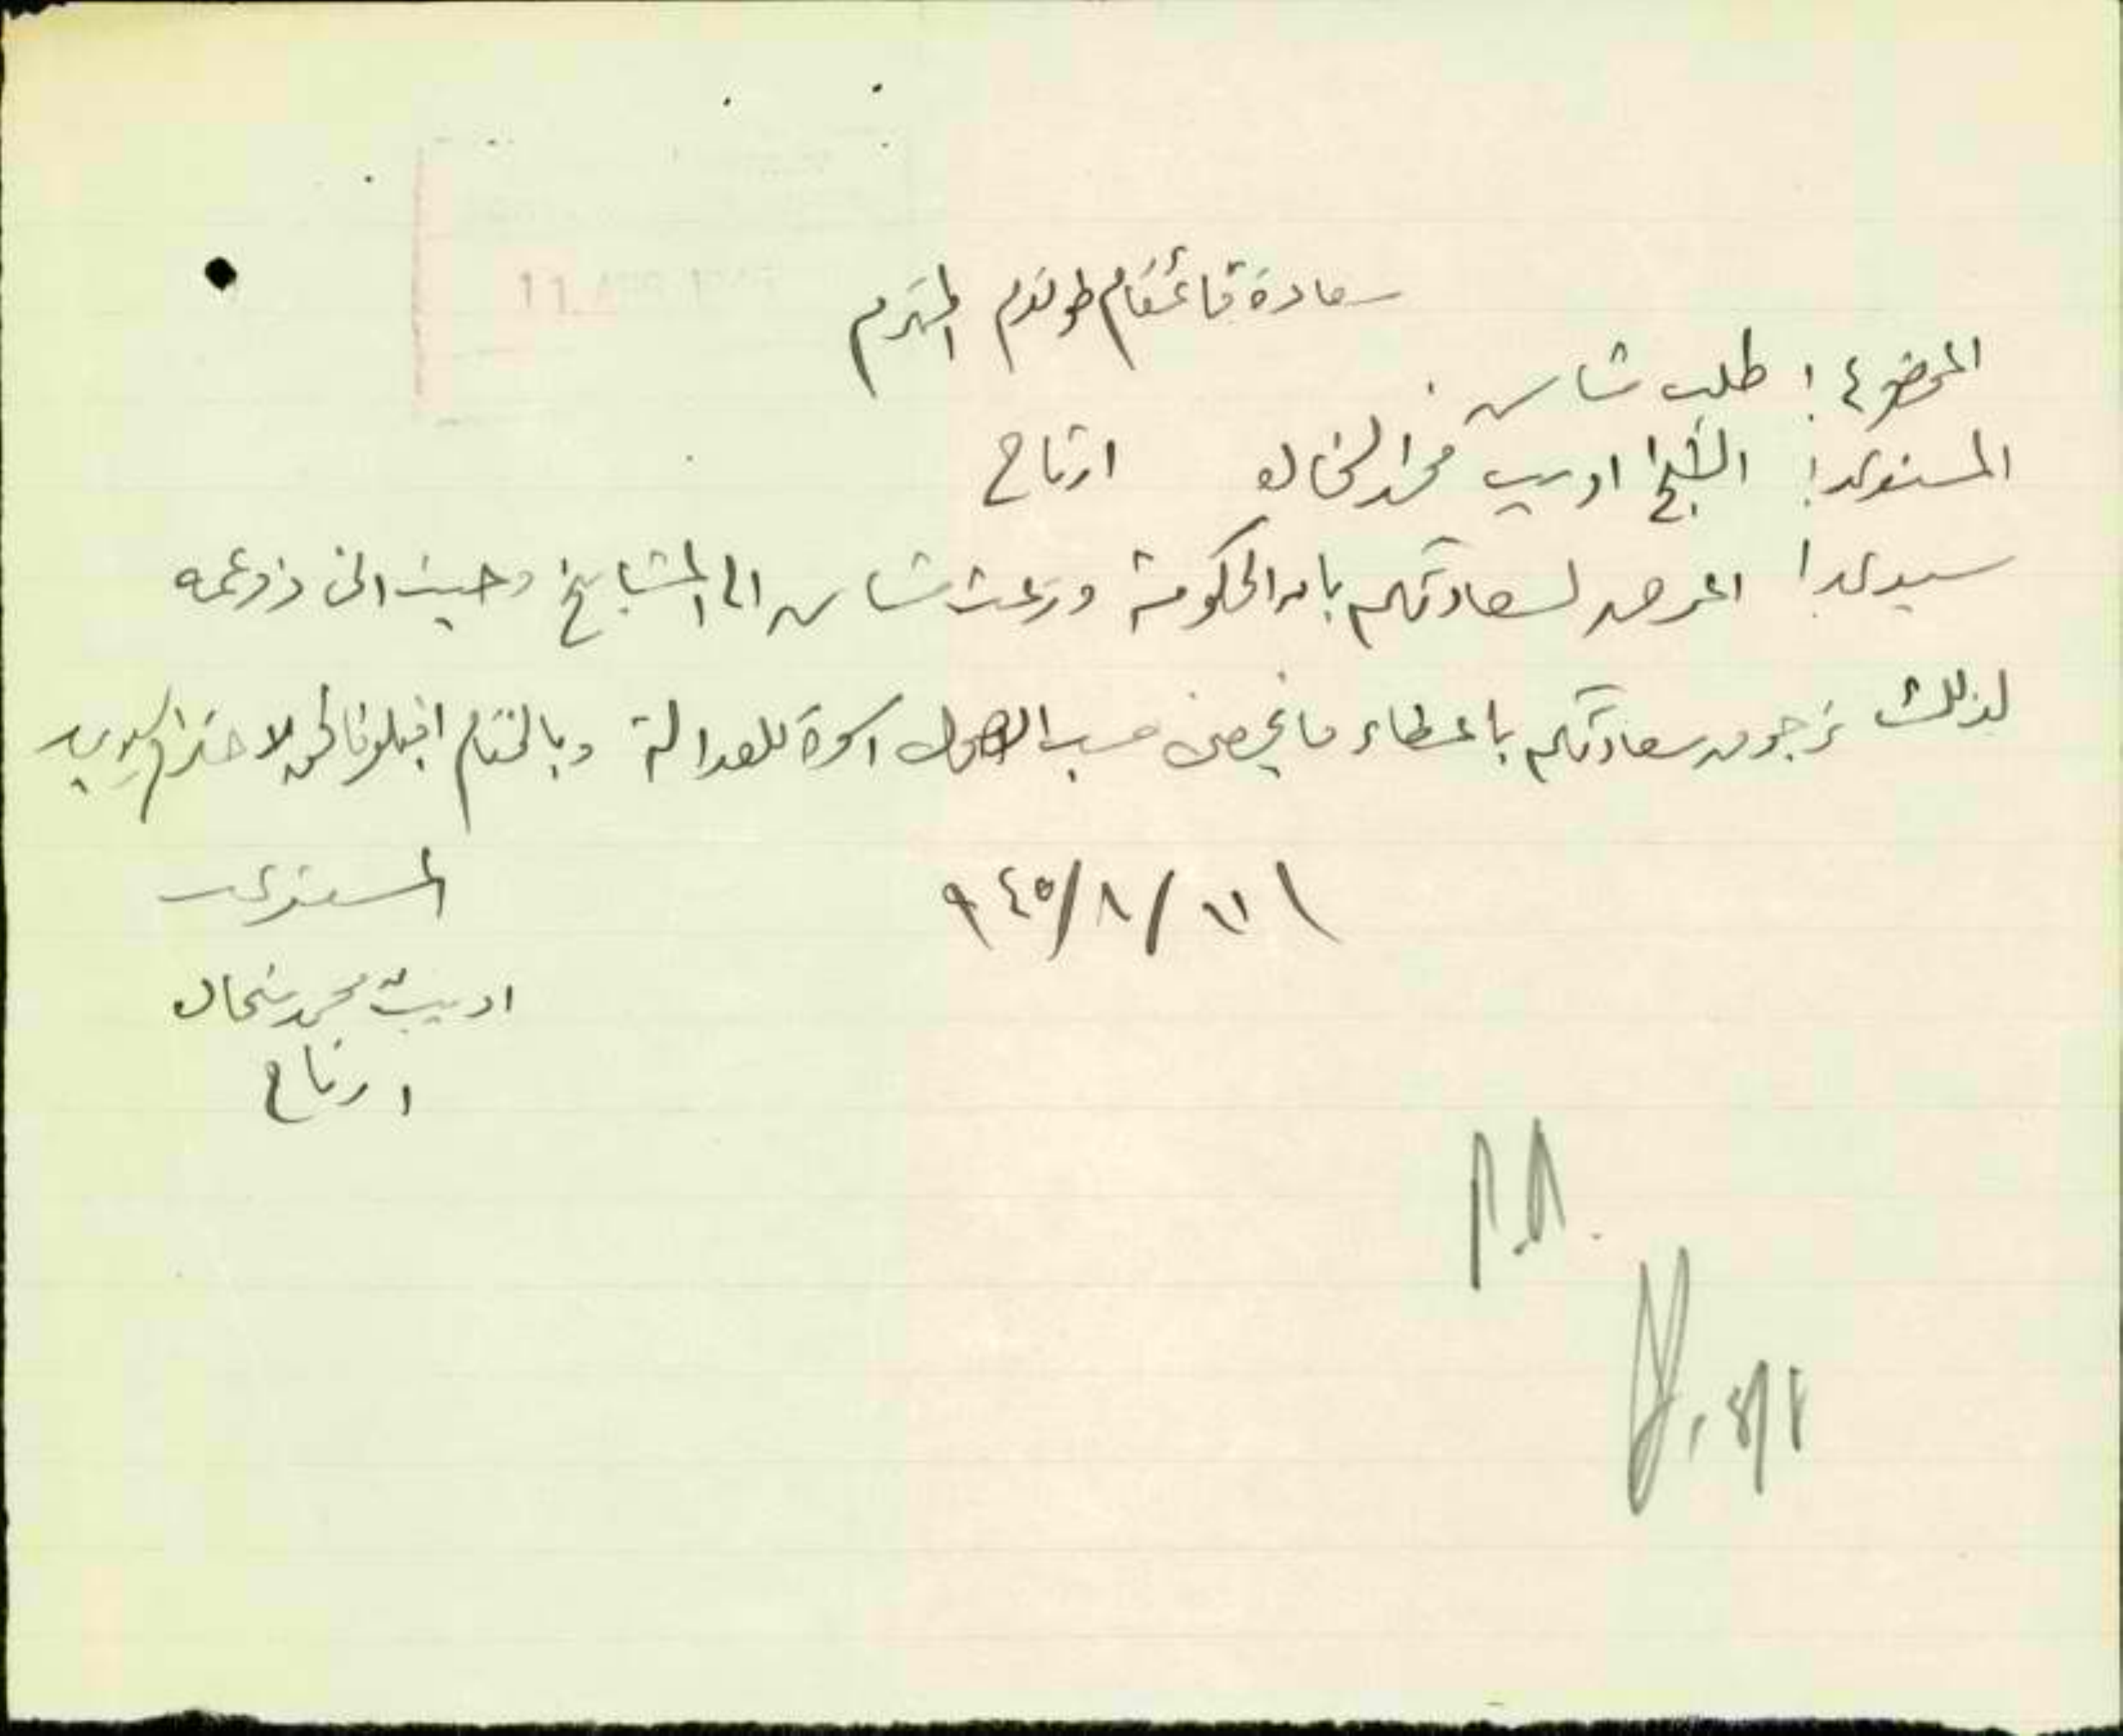 11 APR
سعادة قائمقام طولكرم المحترم
الموضوع: طلب شاش
المستدعي: الشيخ اديب محمد الخال ارتاح
سيدي! اعرض لسعادتكم بان الحكومة وزعت شاش الى المشايخ وحيث اني ذو عمه
لذلك نرجو من سعادتكم باعطاء ما يخصني حسب الاصول اسوة للعدالة وبالختام اقبلوا فائق الاحترام سيدي
٩٤٥/٨/
المستدعي
اديب محمد
ارتاح
P.A.